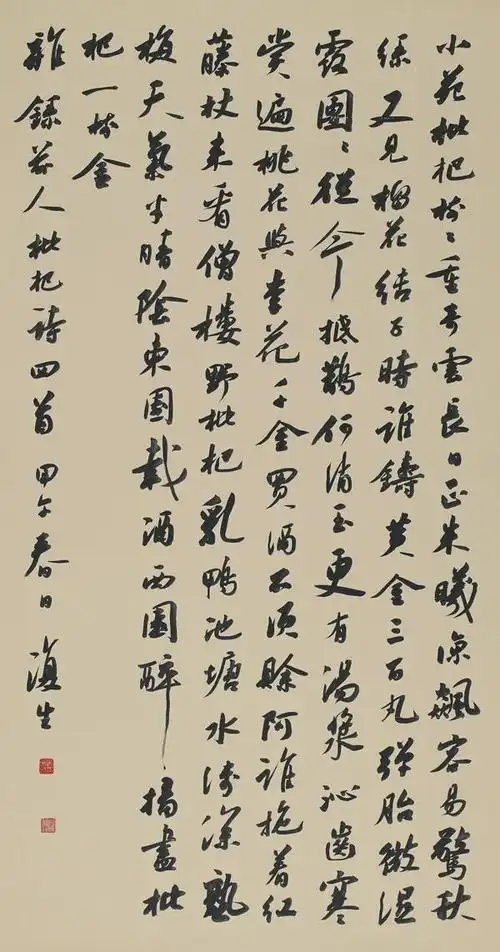 小苑枇杷樹〻垂奇雲長日正朱曦涼飆容易驚秋
綠又見榴花結子時誰鑄黃金三百丸彈胎微湿
露團〻從今抵鵲何消玉更有湯漿沁齒寒
賞遍桃花與李花千金買酒不須賒阿誰拖着紅
藤杖来看僧樓野枇杷乳鴨池塘水淺深熟
梅天氣半晴陰東園載酒西園醉摘盡枇
杷一樹金
雜錄前人枇杷詩四首 甲午春日 復生